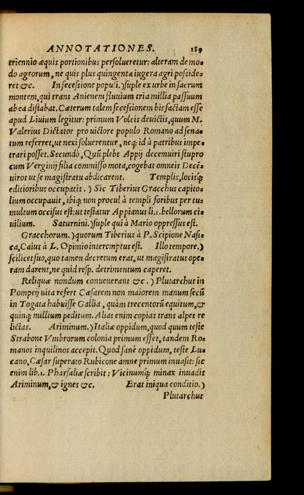 ANNOTATIONES. 189
triennio æquis portionibus persolueretur: alteram de mo-
do agrorum, ne quis plus quingenta iugera agri posside-
ret &c. In secessione populi.) supple ex urbe in sacrum
montem, qui trans Anienem fluuium tria millia passuum
ab ea distabat. Cæterum talem secessionem bis factam esse
apud Liuium legitur: primum Volcis deuictis, quum M.
Valerius Dictator pro uictore populo Romano ad sena-
tum referret, ut nexi soluerentur, neq; id à patribus impe-
trari posset. Secundò, Quũ plebs Appij decemuiri stupro
cum Verginij filia commisso mota, cogebat omneis Decē
uiros ut se magistratu abdicarent. Templis, locisq;
editioribus occupatis.) Sic Tiberius Gracchus capito-
lium occupauit, ibiq; non procul à templi foribus per tu-
multum occisus est: ut testatur Appianus li.. bellorum ci-
uilium. Saturnini.) supple qui à Mario oppressus est.
Gracchorum.) quorum Tiberius à P. Scipione Nasi-
ca, Caius à L. Opimio interemptus est. Illo tempore.)
scilicet suo, quo tamen decretum erat, ut magistratus ope-
ram darent, ne quid resp. detrimentum caperet.
Reliquæ nondum conuenerant &c.) Plutarchus in
Pompeij uita refert Cæsarem non maiorem manum secũ
in Togata habuisse Gallia, quàm trecentorũ equitum, &
quinq; millium peditum. Alias enim copias trans alpes re
lictas. Ariminum.) Italiæ oppidum, quod quum teste
Strabone Vmbrorum colonia primum esset, tandem Ro-
manos inquilinos accepit. Quod sanè oppidum, teste Lu-
cano, Cæsar superato Rubicone amne primum inuasit: sic
enim lib.1. Pharsaliæ scribit: Vicinumq; minax inuadit
Ariminum, & ignes &c. Erat iniqua conditio.)
Plutarchus